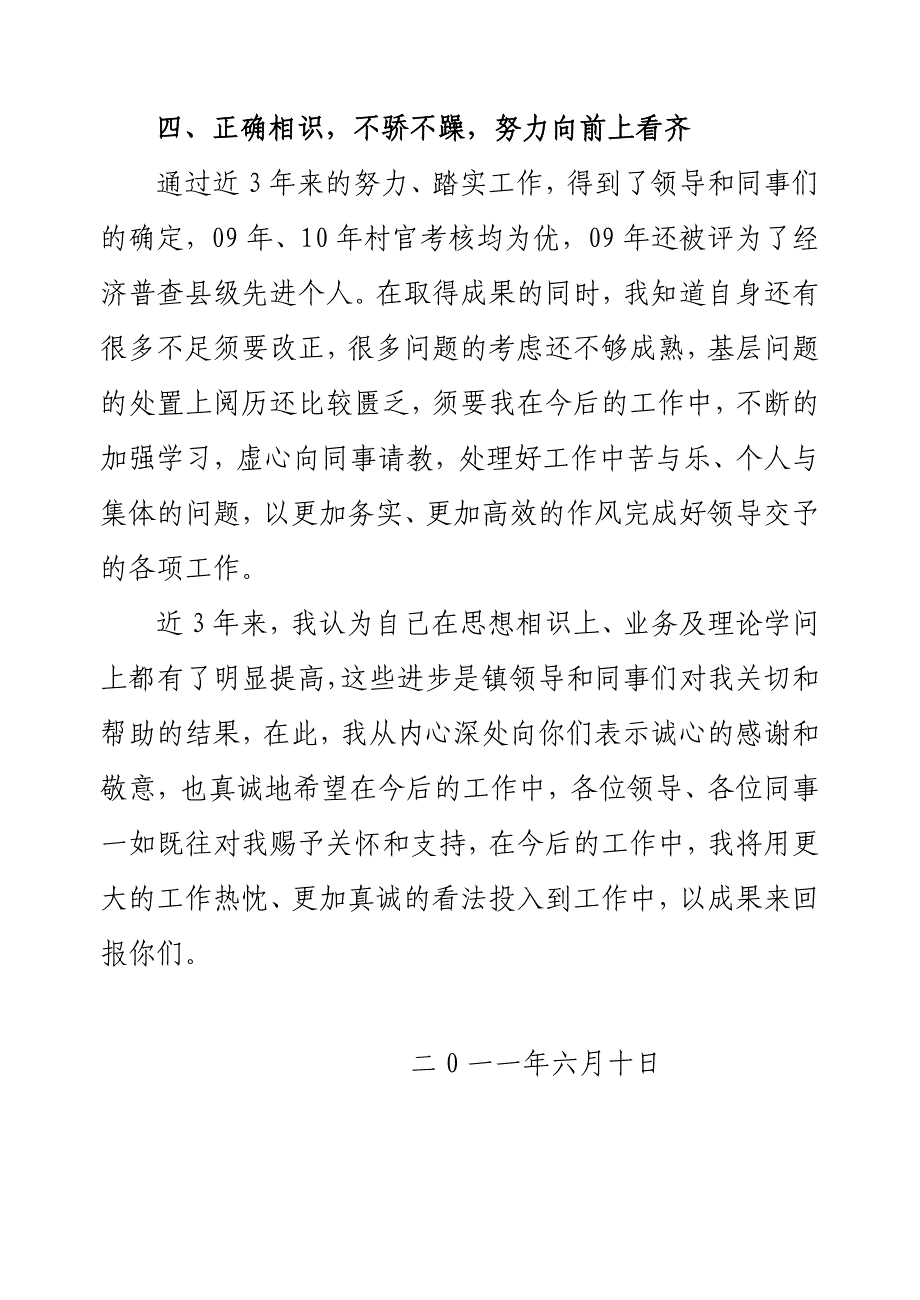 四、正确相识，不骄不躁，努力向前上看齐
通过近 3 年来的努力、踏实工作，得到了领导和同事们
的确定，09 年、10 年村官考核均为优，09 年还被评为了经
济普查县级先进个人。在取得成果的同时，我知道自身还有
很多不足须要改正，很多问题的考虑还不够成熟，基层问题
的处置上阅历还比较匮乏，须要我在今后的工作中，不断的
加强学习，虚心向同事请教，处理好工作中苦与乐、个人与
集体的问题，以更加务实、更加高效的作风完成好领导交予
的各项工作。
近 3 年来，我认为自己在思想相识上、业务及理论学问
上都有了明显提高，这些进步是镇领导和同事们对我关切和
帮助的结果，在此，我从内心深处向你们表示诚心的感谢和
敬意，也真诚地希望在今后的工作中，各位领导、各位同事
一如既往对我赐予关怀和支持，在今后的工作中，我将用更
大的工作热忱、更加真诚的看法投入到工作中，以成果来回
报你们。
二 0 一一年六月十日